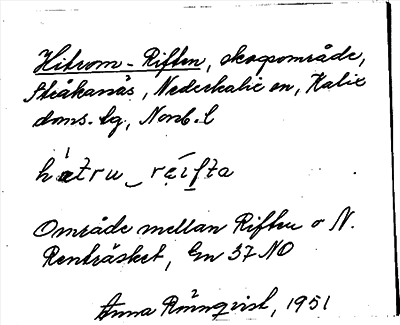 Hitrom-Riften, skogsområde,
Stråkanäs, Nederkalix sn, Kalix
doms.lg, Norrb.l
hitru‿reifta
Område mellan Riften o N.
Renträsket, Gn 37 NO
Anna Rönnqvist, 1951